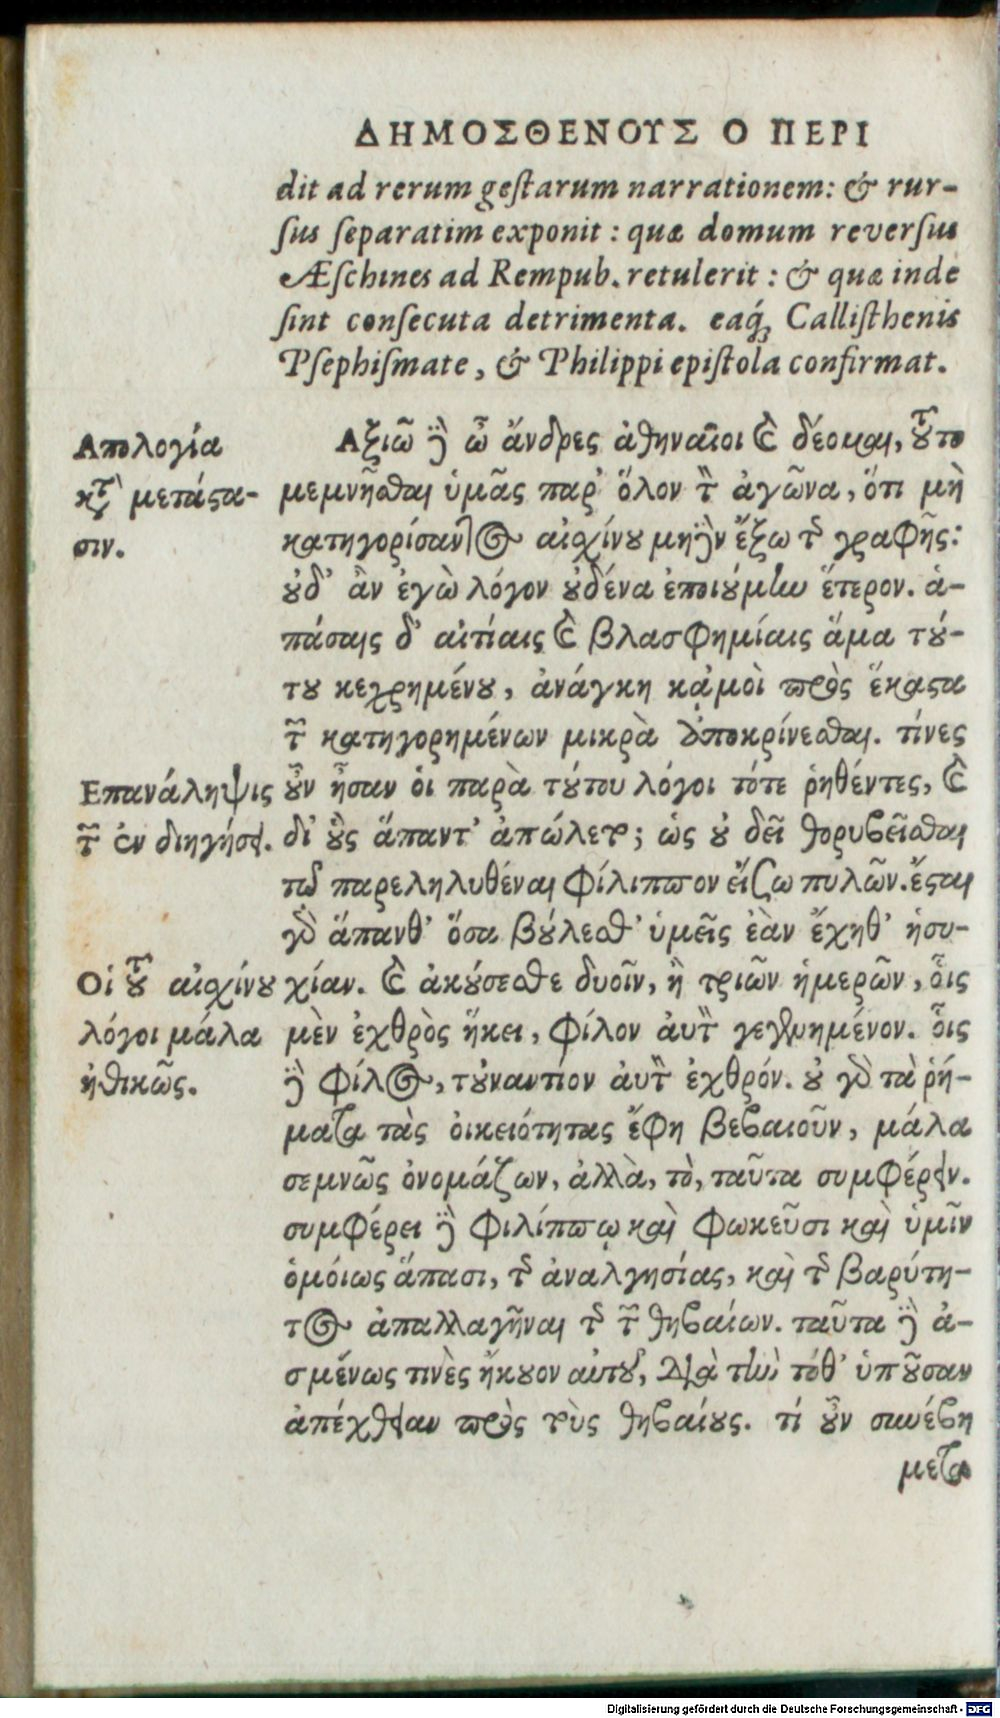 ΔΗΜΟΣΘΕΝΟΥΣ Ο ΠΕΡΙ
dit ad rerum gestarum narrationem: & rur-
sus separatim exponit: quæ domum reversus
Æschines ad Rempub. retulerit: & quæ inde
sint consecuta detrimenta. eaq́; Callisthenis
Psephismate, & Philippi epistola confirmat.
Απολογία
κατὰ μετάστα-
σιν.
Αξιῶ δὲ ὦ ἄνδρες ἀθηναῖοι καὶ δέομαι, τοῦτο
μεμνῆσθαι ὑμᾶς παρ' ὅλον τὸν ἀγῶνα, ὅτι μὴ
κατηγορήσαντος αἰσχίνου μηδὲν ἔξω τῆς γραφῆς:
οὐδ' ἂν ἐγὼ λόγον οὐδένα ἐποιούμην ἕτερον. ἁ-
πάσαις δ' αἰτίαις καὶ βλασφημίαις ἅμα τού-
του κεχρημένου, ἀνάγκη κἀμοὶ πρὸς ἕκαστα
τῶν κατηγορημένων μικρὰ ἀποκρίνεσθαι. τίνες
Επανάληψις
τῶν ἐν διηγήσει.
οὖν ἦσαν οἱ παρὰ τούτου λόγοι τότε ῥηθέντες, καὶ
δι' οὓς ἅπαντ' ἀπώλετο; ὡς οὐ δεῖ θορυβεῖσθαι
τῷ παρεληλυθέναι Φίλιππον εἴσω πυλῶν. ἔσται
γὰρ ἅπανθ' ὅσα βούλεσθ' ὑμεῖς ἐὰν ἔχηθ' ἡσυ-
Οἱ τοῦ αἰσχίνου
λόγοι μάλα
ἠθικῶς.
χίαν. καὶ ἀκούσεσθε δυοῖν, ἢ τριῶν ἡμερῶν, οἷς
μὲν ἐχθρὸς ἥκει, φίλον αὐτὸν γεγενημένον. οἷς
δὲ φίλος, τοὐναντίον αὐτὸν ἐχθρόν. οὐ γὰρ τὰ ῥή-
ματα τὰς οἰκειότητας ἔφη βεβαιοῦν, μάλα
σεμνῶς ὀνομάζων, ἀλλὰ, τὸ, ταῦτα συμφέρειν.
συμφέρει δὲ Φιλίππῳ καὶ Φωκεῦσι καὶ ὑμῖν
ὁμοίως ἅπασι, τῆς ἀναλγησίας, καὶ τῆς βαρύτη-
τος ἀπαλλαγῆναι τῆς τῶν θηβαίων. ταῦτα δὲ ἀ-
σμένως τινὲς ἤκουον αὐτοῦ, διὰ τὴν τόθ' ὑποῦσαν
ἀπέχθειαν πρὸς τοὺς θηβαίους. τί οὖν συνέβη
μετα
Digitalisierung gefördert durch die Deutsche Forschungsgemeinschaft - DFG